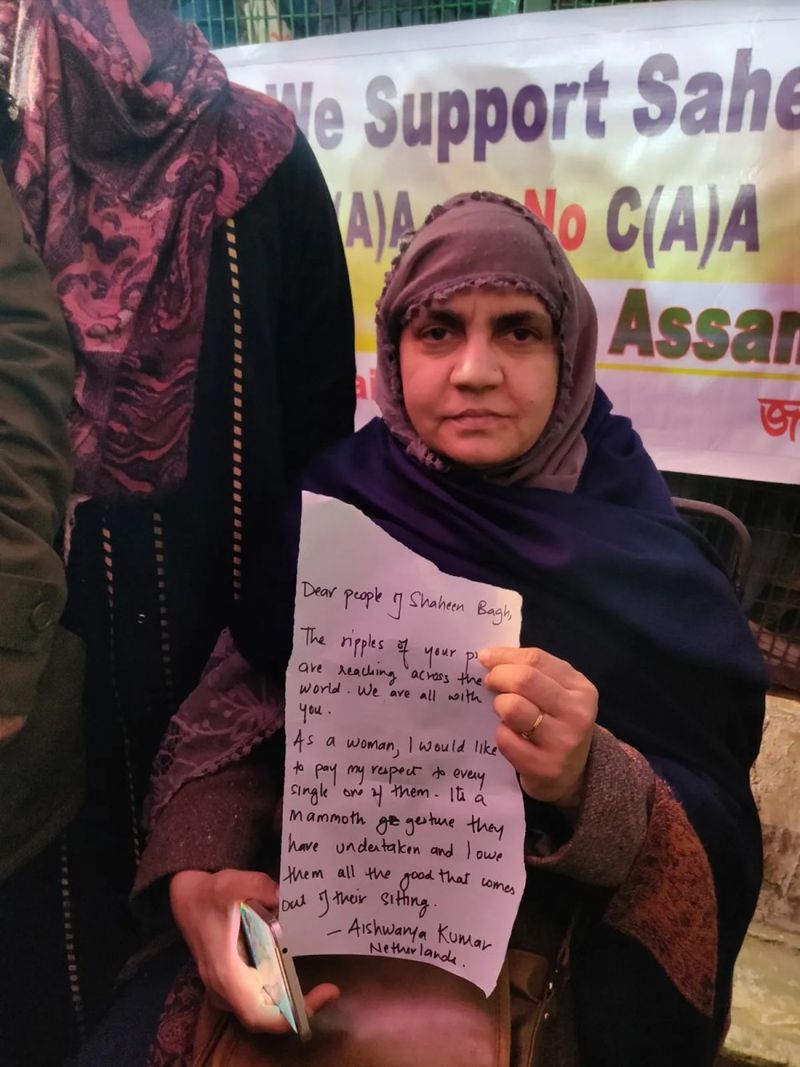 We Support Sahe
(A)A No C(A)A
Assam
Dear people of Shaheen Bagh,
The ripples of your
are reaching across the
world. We are all with
you.
As a woman, I would like
to pay my respect to every
single one of them. Its a
mammoth gesture they
have undertaken and I owe
them all the good that comes
out of their sitting.
- Aishwarya Kumar
Netherlands.